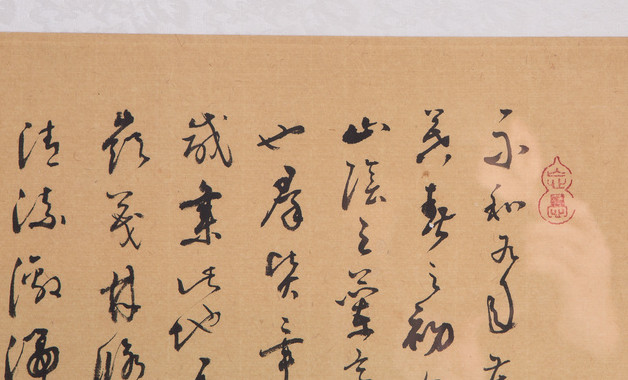 永和九年
暮春之初
山陰之蘭亭
也群賢畢
咸集此地
嶺茂林脩
清流激湍